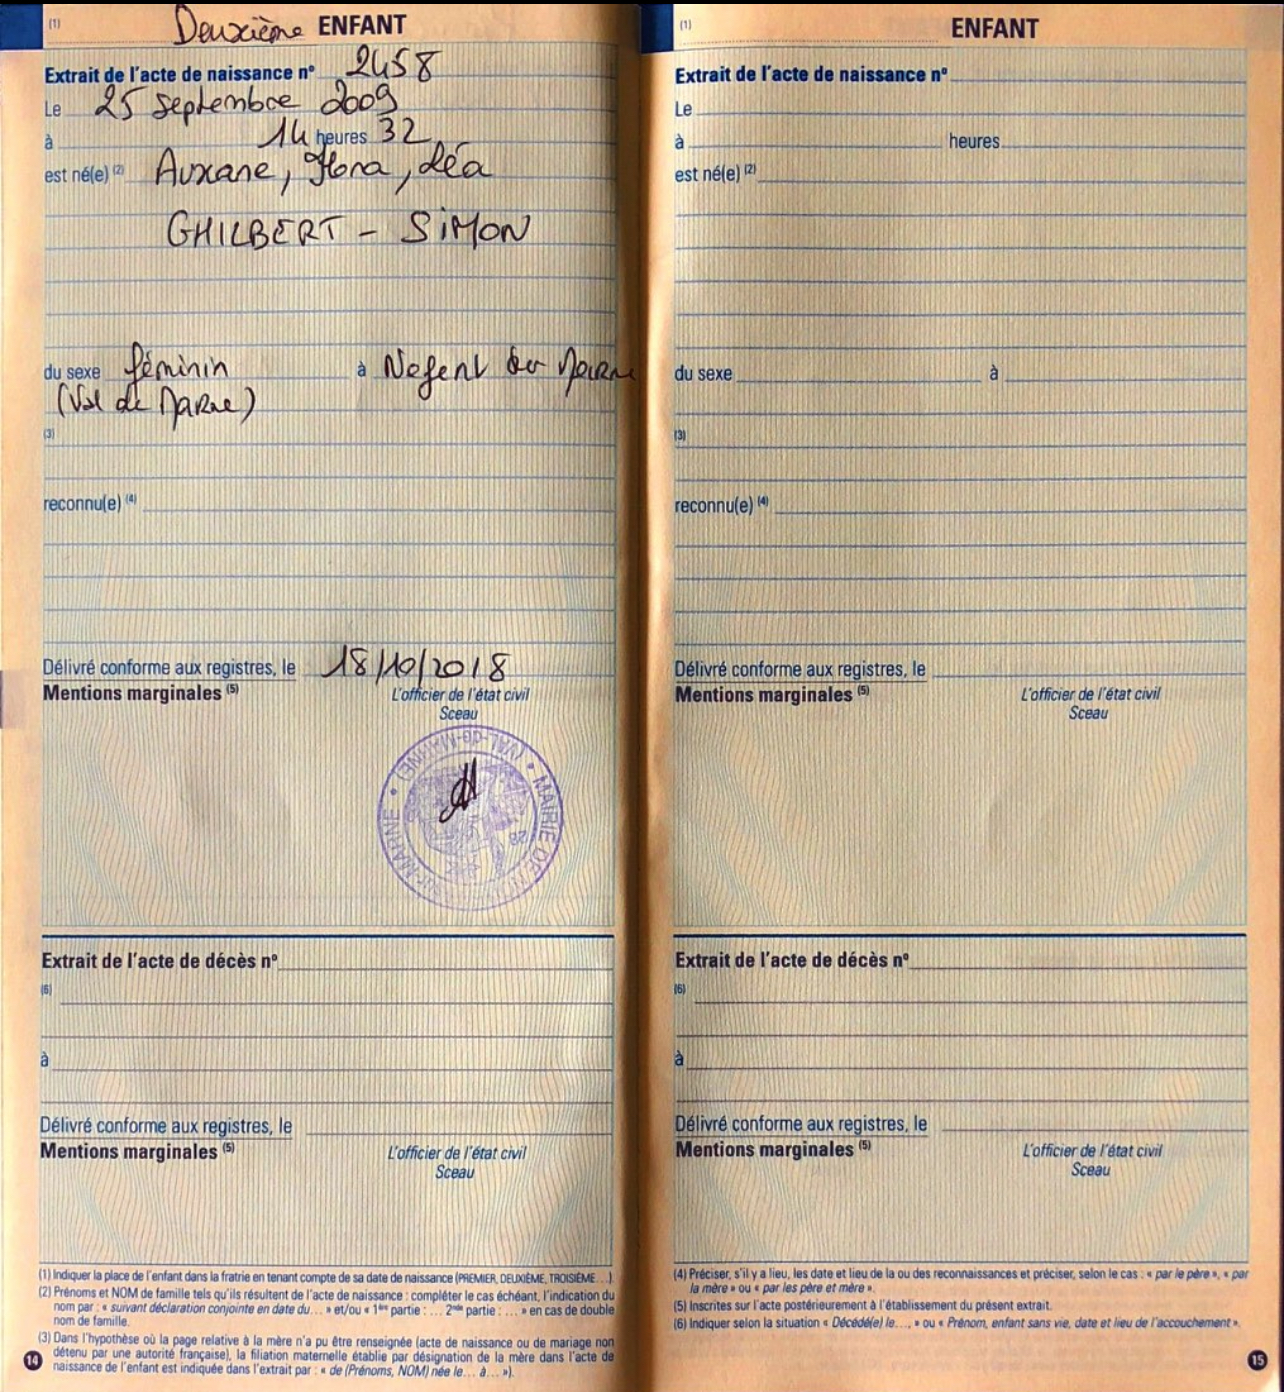 (1) Deuxième ENFANT
Extrait de l'acte de naissance nº 2458
Le 25 septembre 2009
à 14 heures 32
est né(e) (2) Auxane, Flora, Léa
GHILBERT - SIMON
du sexe féminin à Nogent sur Marne
(Val de Marne)
(3)
reconnu(e) (4)
Délivré conforme aux registres, le 18/10/2018
Mentions marginales (5)
L'officier de l'état civil
Sceau
MAIRIE DE NOGENT-sur-MARNE • (VAL-de-MARNE) •
28
Extrait de l'acte de décès nº
(6)
à
Délivré conforme aux registres, le
Mentions marginales (5)
L'officier de l'état civil
Sceau
(1) Indiquer la place de l'enfant dans la fratrie en tenant compte de sa date de naissance (PREMIER, DEUXIÈME, TROISIÈME...).
(2) Prénoms et NOM de famille tels qu'ils résultent de l'acte de naissance : compléter le cas échéant, l'indication du
nom par : « suivant déclaration conjointe en date du... » et/ou « 1ère partie : ... 2nde partie : ... » en cas de double
nom de famille.
(3) Dans l'hypothèse où la page relative à la mère n'a pu être renseignée (acte de naissance ou de mariage non
détenu par une autorité française), la filiation maternelle établie par désignation de la mère dans l'acte de
naissance de l'enfant est indiquée dans l'extrait par : « de (Prénoms, NOM) née le... à... »).
14
(1) ENFANT
Extrait de l'acte de naissance nº
Le
à heures
est né(e) (2)
du sexe à
(3)
reconnu(e) (4)
Délivré conforme aux registres, le
Mentions marginales (5)
L'officier de l'état civil
Sceau
Extrait de l'acte de décès nº
(6)
à
Délivré conforme aux registres, le
Mentions marginales (5)
L'officier de l'état civil
Sceau
(4) Préciser, s'il y a lieu, les date et lieu de la ou des reconnaissances et préciser, selon le cas : « par le père », « par
la mère » ou « par les père et mère ».
(5) Inscrites sur l'acte postérieurement à l'établissement du présent extrait.
(6) Indiquer selon la situation « Décédé(e) le..., » ou « Prénom, enfant sans vie, date et lieu de l'accouchement ».
15